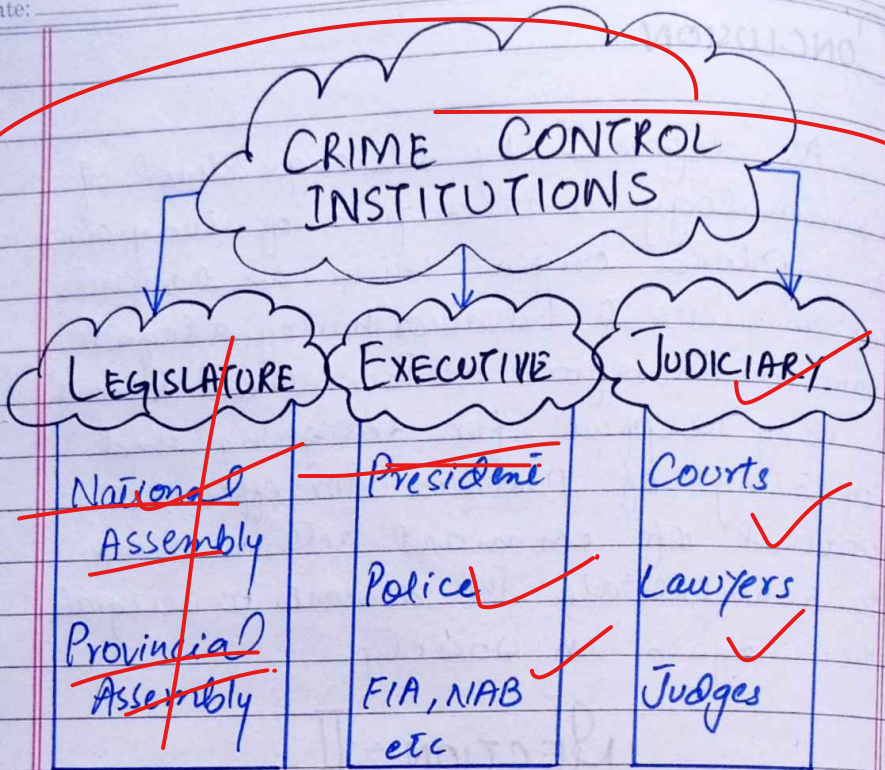 ate:
CRIME CONTROL
INSTITUTIONS
LEGISLATURE
National
Assembly
Provincial
Assembly
EXECUTIVE
President
Police
FIA, NAB
etc
JUDICIARY
Courts
Lawyers
Judges